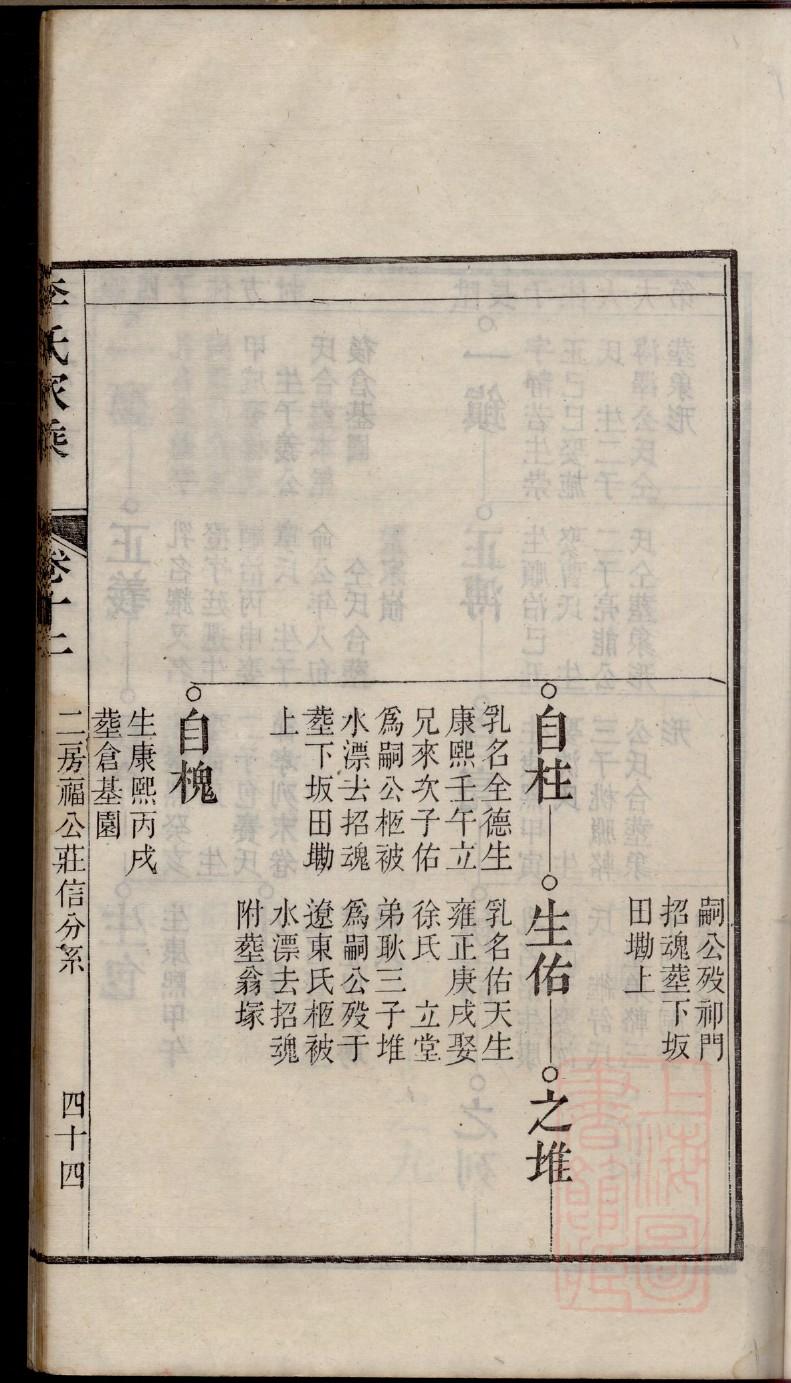 嗣公殁祁門
招魂塟下坂
田墈上
自柱
乳名全德生
康熙壬午立
兄來次子佑
爲嗣公柩被
水漂去招魂
塟下坂田墈
上
生佑
乳名佑天生
雍正庚戌娶
徐氏　立堂
弟耿三子堆
爲嗣公殁于
遼東氏柩被
水漂去招魂
附塟翁塚
之堆
自槐
生康熙丙戌
塟倉基園
李氏家乘
卷十二
二房福公莊信分系
四十四